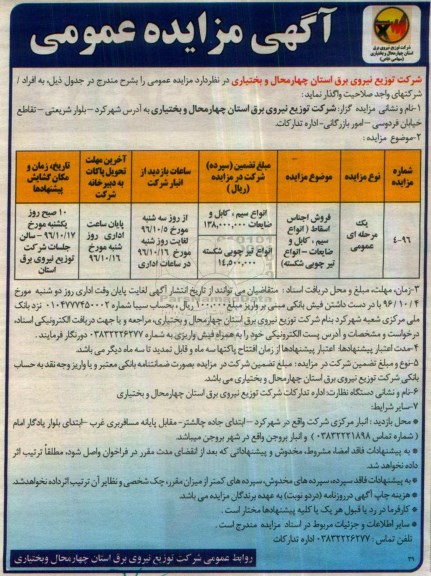 آگهی مزایده عمومی
شرکت توزیع نیروی برق
استان چهارمحال و بختیاری
(سهامی خاص)
شرکت توزیع نیروی برق استان چهارمحال و بختیاری در نظردارد مزایده عمومی را بشرح مندرج در جدول ذیل، به افراد /
شرکتهای واجد صلاحیت واگذار نماید:
۱-نام و نشانی مزایده گزار: شرکت توزیع نیروی برق استان چهارمحال و بختیاری به آدرس شهرکرد -بلوار شریعتی - تقاطع
خیابان فردوسی -امور بازرگانی- اداره تدارکات.
۲-موضوع مزایده:
شماره مزایده
نوع مزایده
موضوع مزایده
مبلغ تضمین (سپرده) شرکت در مزایده (ریال)
ساعات بازدید از انبار شرکت
آخرین مهلت تحویل پاکات به دبیرخانه شرکت
تاریخ، زمان و مکان گشایش پیشنهادها
۴-۹۶
یک مرحله ای عمومی
فروش اجناس اسقاط (انواع سیم، کابل و ضایعات -انواع تیر چوبی شکسته)
انواع سیم ، کابل و ضایعات ۱۳۸,۰۰۰,۰۰۰
انواع تیر چوبی شکسته ۱۴,۵۰۰,۰۰۰
از روز سه شنبه مورخ ۹۶/۱۰/۵ لغایت روز شنبه مورخ ۹۶/۱۰/۱۶ در ساعات اداری
پایان ساعت اداری روز شنبه مورخ ۹۶/۱۰/۱۶
۱۰ صبح روز یکشنبه مورخ ۹۶/۱۰/۱۷ - سالن جلسات شرکت توزیع نیروی برق استان
۳-زمان، مهلت، مبلغ و محل دریافت اسناد : متقاضیان می توانند از تاریخ انتشار آگهی لغایت پایان وقت اداری روز دو شنبه مورخ
۹۶/۱۰/۴ با در دست داشتن فیش بانکی مبنی بر واریز مبلغ ۱۰۰,۰۰۰ ریال ، بحساب سیبا شماره ۰۱۰۴۷۷۷۴۵۰۰۰۲ نزد بانک
ملی مرکزی شعبه شهرکرد بنام شرکت توزیع نیروی برق استان چهارمحال و بختیاری، مراجعه و یا جهت دریافت الکترونیکی اسناد،
درخواست و مشخصات و آدرس پست الکترونیکی خود را به همراه فیش واریزی به شماره ۰۳۸۳۲۲۲۶۲۷۷ دورنگار فرمایند .
۴-مدت اعتبار پیشنهادها: اعتبار پیشنهادها از زمان افتتاح پاکتها سه ماه و قابل تمدید تا سه ماه دیگر می باشد.
۵-نوع و مبلغ تضمین شرکت در مزایده : مبلغ تضمین شرکت در مزایده بصورت ضمانتنامه بانکی معتبر و یا واریز وجه نقد به حساب
بانکی شرکت توزیع نیروی برق استان چهارمحال و بختیاری می باشد.
۶-نام و نشانی دستگاه نظارت: اداره تدارکات شرکت توزیع نیروی برق استان چهارمحال و بختیاری
۷-سایر شرایط:
* محل بازدید : انبار مرکزی شرکت واقع در شهرکرد - ابتدای جاده چالشتر- مقابل پایانه مسافربری غرب -ابتدای بلوار یادگار امام
( شماره تماس ۰۳۸۳۲۲۲۱۸۹۸ ) و انبار بروجن واقع در شهر بروجن میباشد.
* به پیشنهادات فاقد امضا، مشروط، مخدوش و پیشنهاداتی که بعد از انقضای مدت مقرر در فراخوان واصل شود، مطلقاً ترتیب اثر
داده نخواهد شد.
* به پیشنهادات فاقد سپرده، سپرده های مخدوش، سپرده های کمتر از میزان مقرر، چک شخصی و نظایر آن ترتیب اثر داده نخواهد شد.
* هزینه چاپ آگهی در روزنامه (در دو نوبت) به عهده برندگان مزایده می باشد.
* کارفرما در رد یا قبول هر یک یا کلیه پیشنهادها مختار است .
* سایر اطلاعات و جزئیات مربوط در اسناد مزایده مندرج است .
شماره تماس: ۰۳۸۳۲۲۲۶۲۷۷ اداره تدارکات
روابط عمومی شرکت توزیع نیروی برق استان چهارمحال وبختیاری